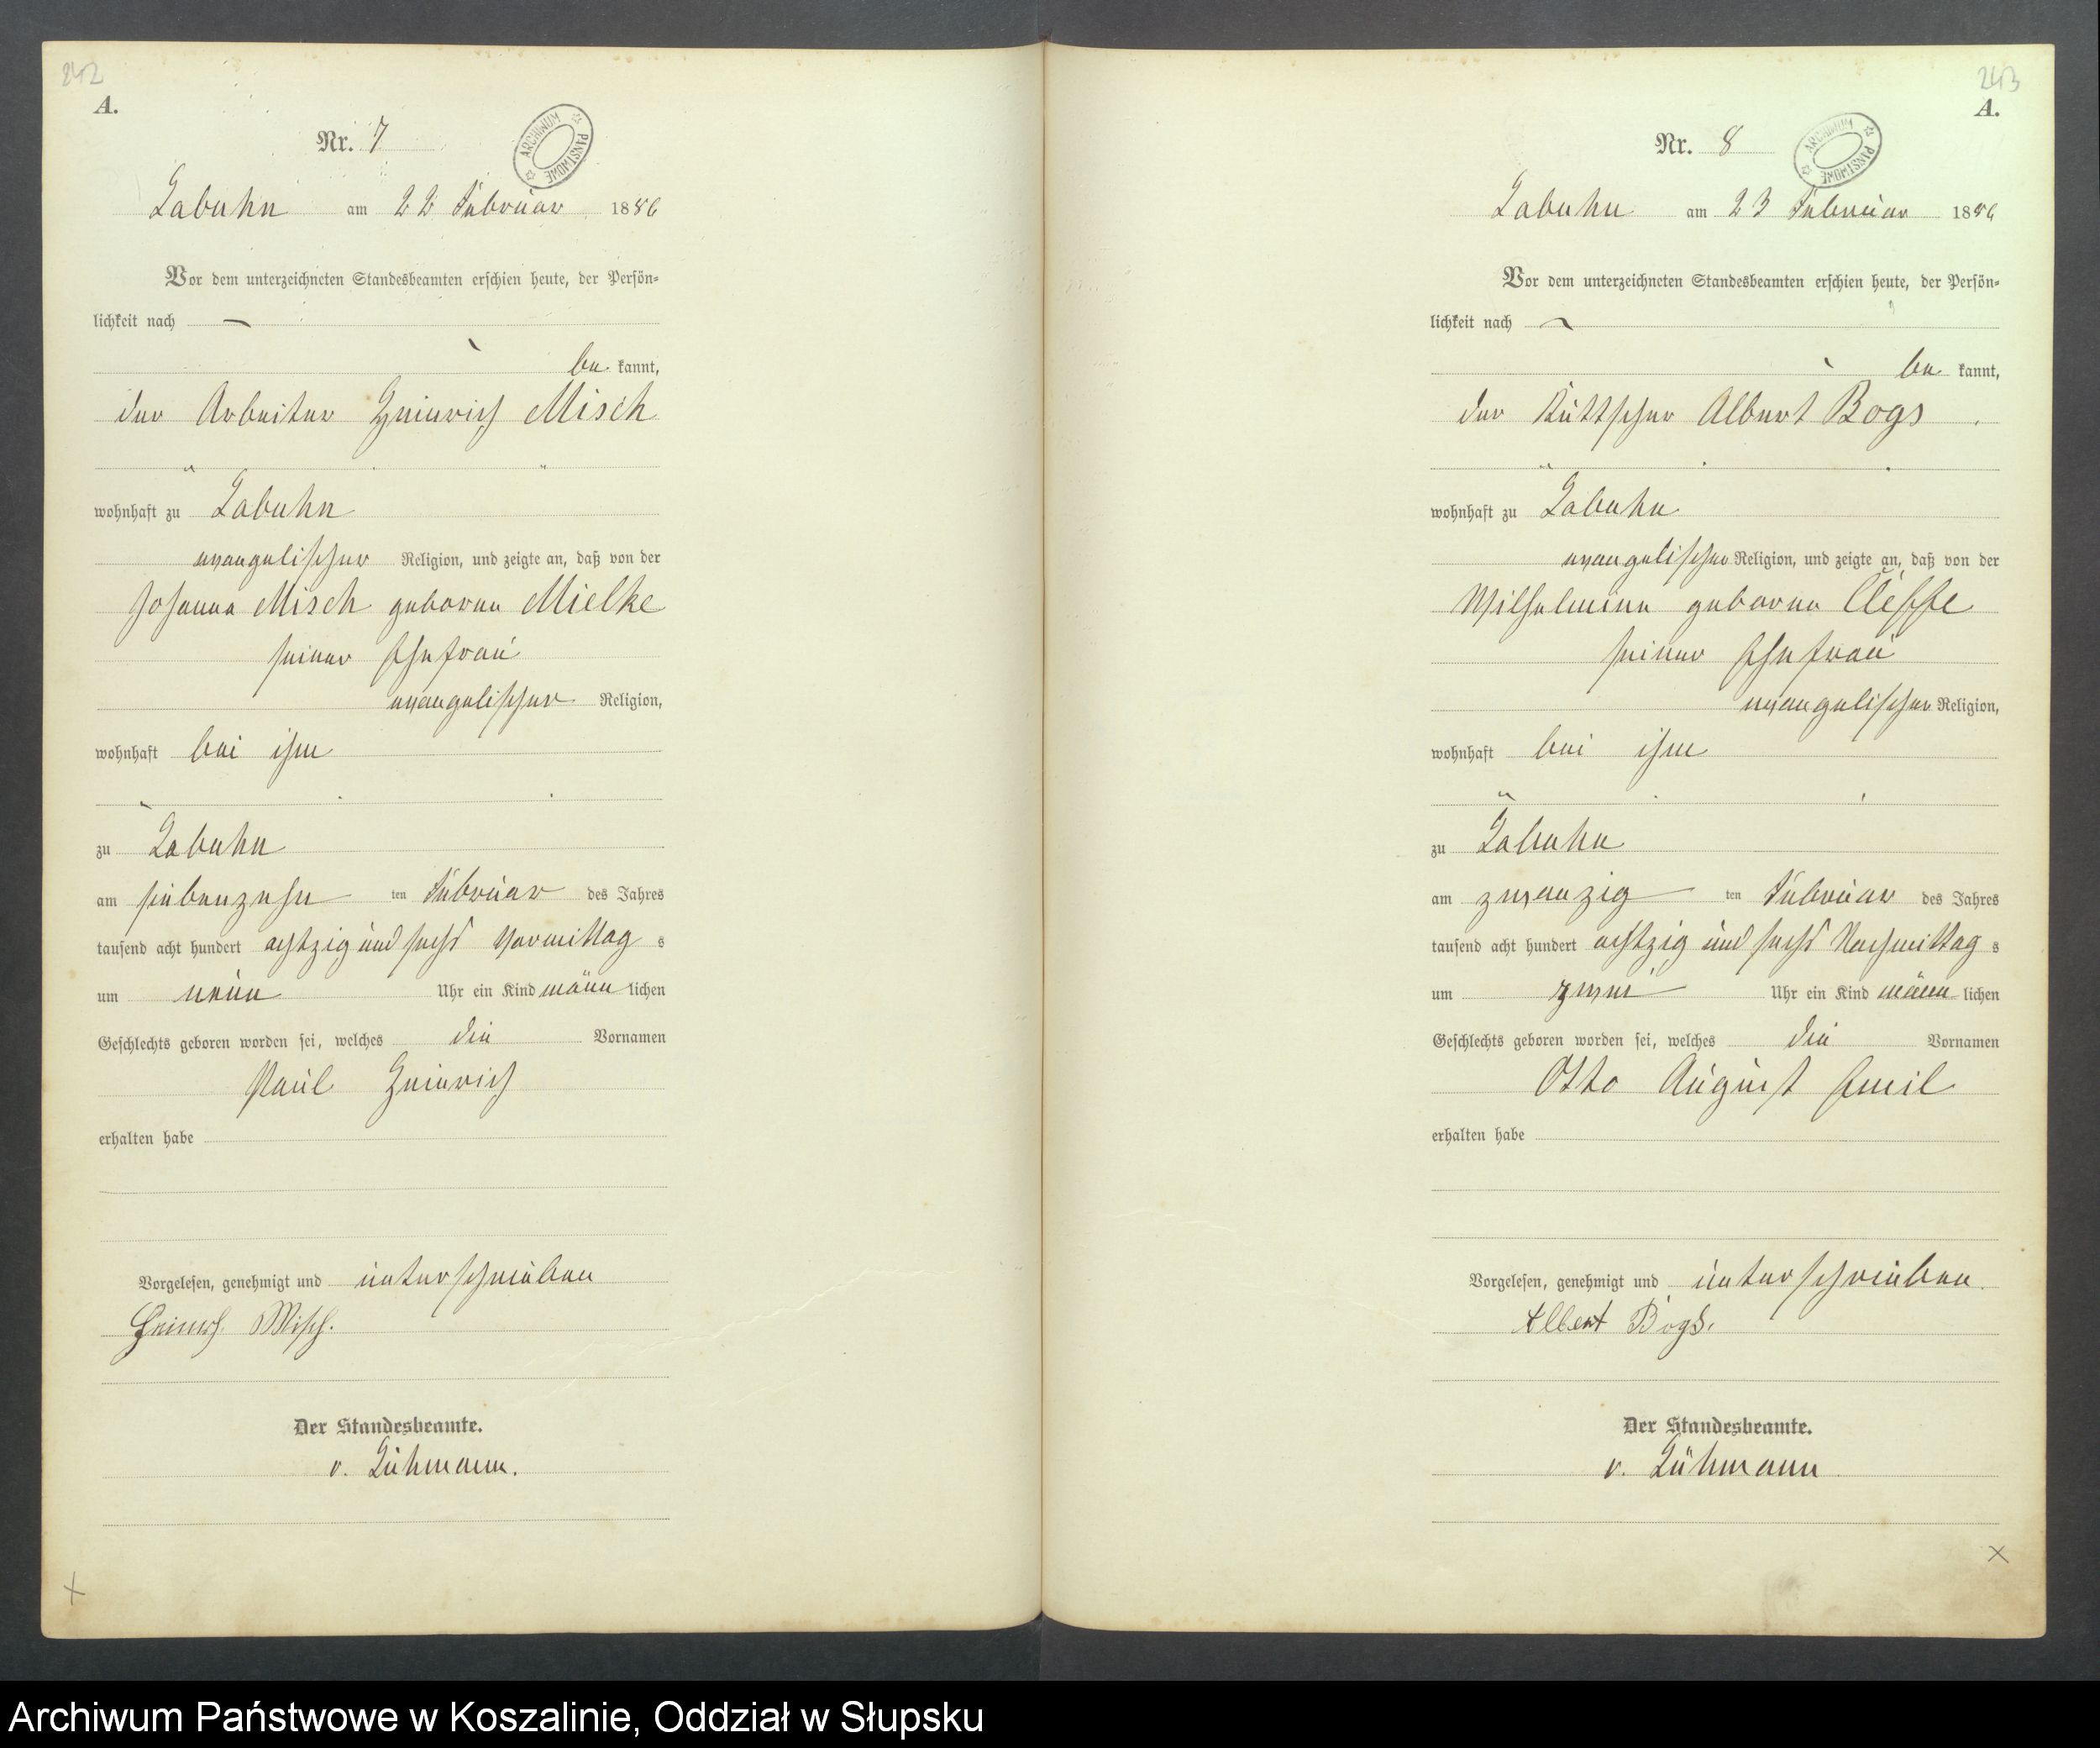 242
A.
Nr. 7
ARCHIWUM PAŃSTWOWE
Labuhn am 22 Februar 1886
Vor dem unterzeichneten Standesbeamten erschien heute, der Persön-
lichkeit nach
be kannt,
der Arbeiter Heinrich Misch
wohnhaft zu Labuhn
evangelischer Religion, und zeigte an, daß von der
Johanna Misch geborne Mielke
seiner Ehefrau
evangelischer Religion,
wohnhaft bei ihm
zu Labuhn
am siebenzehn ten Februar des Jahres
tausend acht hundert achtzig und sechs Vormittag s
um neun Uhr ein Kind männ lichen
Geschlechts geboren worden sei, welches die Vornamen
Paul Heinrich
erhalten habe
Vorgelesen, genehmigt und unterschrieben
Heinrich Misch.
Der Standesbeamte.
v. Lühmann.
243
A.
Nr. 8
ARCHIWUM PAŃSTWOWE
Labuhn am 23 Februar 1886
Vor dem unterzeichneten Standesbeamten erschien heute, der Persön-
lichkeit nach
be kannt,
der Kuttscher Albert Bogs
wohnhaft zu Labuhn
evangelischer Religion, und zeigte an, daß von der
Wilhelmine geborne
seiner Ehefrau
evangelischer Religion,
wohnhaft bei ihm
zu Labuhn
am zwanzig ten Februar des Jahres
tausend acht hundert achtzig und sechs Nachmittag s
um zwei Uhr ein Kind männ lichen
Geschlechts geboren worden sei, welches die Vornamen
Otto August Emil
erhalten habe
Vorgelesen, genehmigt und unterschrieben.
Albert Bogs.
Der Standesbeamte.
v. Lühmann
Archiwum Państwowe w Koszalinie, Oddział w Słupsku